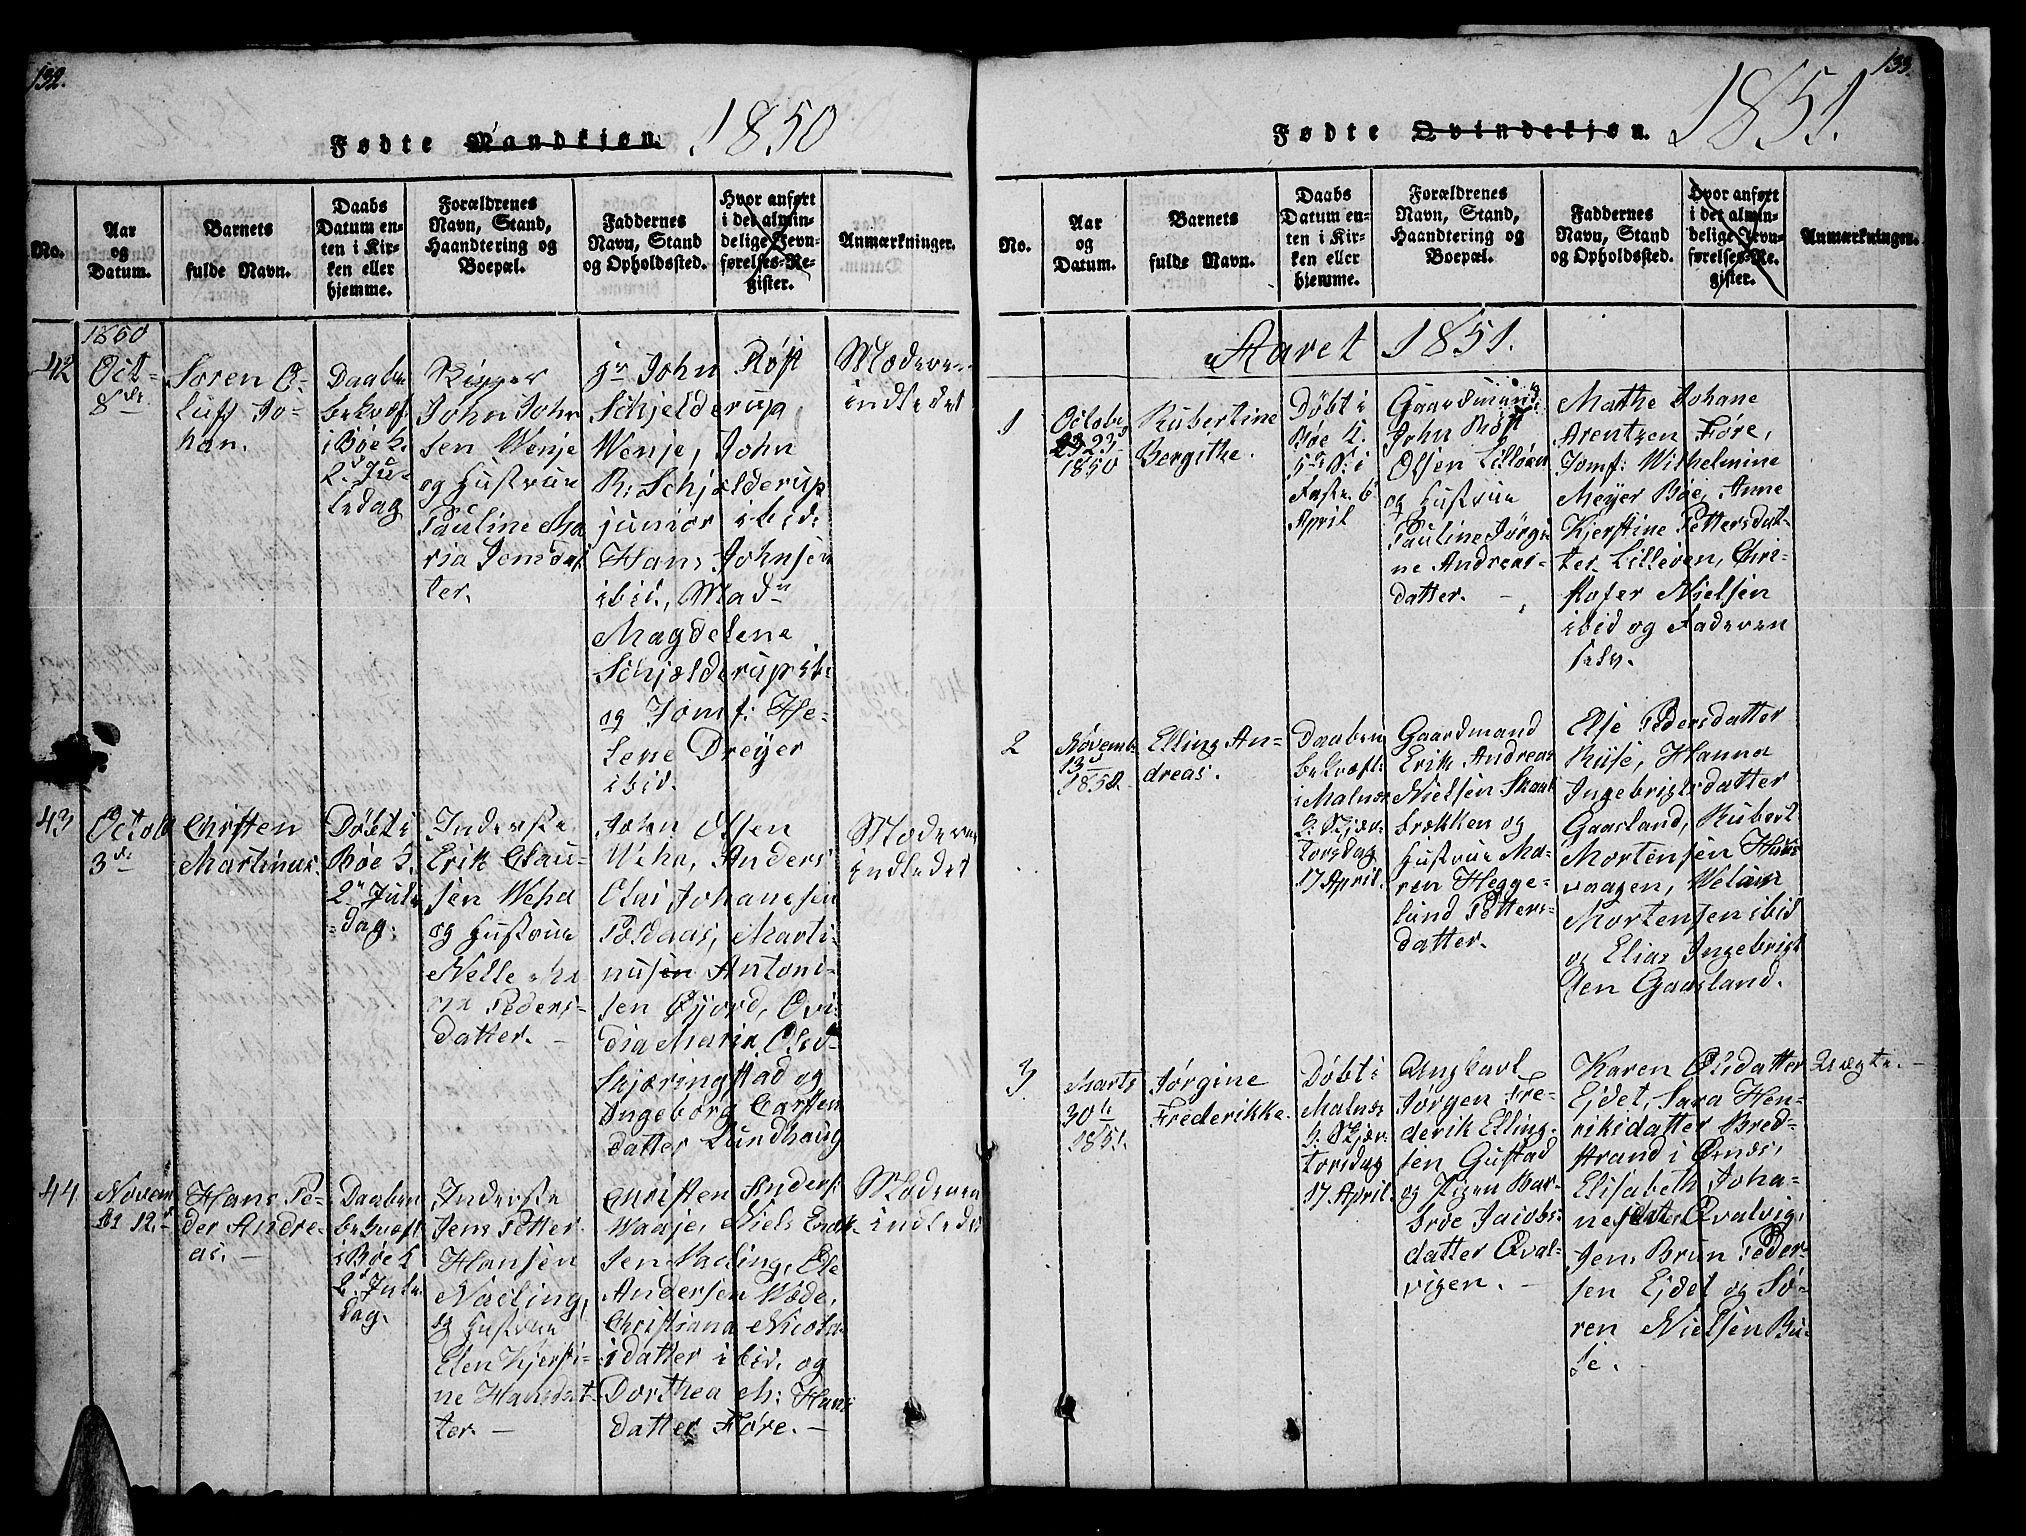 132.
Fødte Mandkjøn. 1850
No.
Aar
og
Datum.
Barnets
fulde Navn.
Daabs
Datum en-
ten i Kir-
ken eller
hjemme.
Forældrenes
Navn, Stand,
Haandtering og
Boepæl.
Faddernes
Navn, Stand
og Opholdssted.
Hvor anført
i det almin-
delige Jevn-
førelses-Re-
gister.
Anmærkninger.
42
1850
Oct-
8de
Søren O-
luf Jo-
han.
Daaben
bekræft
i Bøe K.
2d Ju-
ledag
John John
sen Wenje
og Hustrue
Pauline Ma
ria Jensdat
ter.
jr John Røst
Schjelderup,
Wenje, John
R: Schjelderup
junior ibid:
Hans Johnsen
ibid., Madn
Magdelene
Schjælderup ib:
og Jomf: He-
lene Dreyer
ibid.
Moderen
indledet
43
Octob
3de
Christen
Martinus.
Døbt i
Bøe K.
2n Jule
dag.
Inderste
Erik Clau-
sen Wehd
og Hustrue
Nelle
Peders-
datter. –
John Olsen
Anders
Johanesen
Marti-
nusen Antoni-
sen Øjord, Ovi-
dia Maria Olsd-
Skjæringstad og
Ingeborg Carsten
datter Lundhaug
Moderen
indledet
44
Novem
12d
Hans Pe-
der Andre-
as. –
Daaben
bekræft
i Bøe K
2d Jule
dag.
Inderste
Jens Petter
Hansen
og Hustrue
Elen Kjersti-
ne Hansdat-
ter. –
Christen Anders
Waaje, Niels Erik-
sen Vading, Ole
Andersen Væde,
Christiana Nicola-
idatter ibid. og
Dorthea M: Hans
datter Føre. –
Moderen
indledet
133.
Fødte Qvindekjøn. 1851.
No.
Aar
og
Datum.
Barnets
fulde Navn.
Daabs
Datum en-
ten i Kir-
ken eller
hjemme.
Forældrenes
Navn, Stand,
Haandtering og
Boepæl.
Faddernes
Navn, Stand
og Opholdssted.
Hvor anført
i det almin-
delige Jevn-
førelses-Re-
gister.
Anmærkninger.
Aaret 1851.
1
October
23 23d
1850
Rubertine
Bergithe.
Døbt i
Bøe K.
5te S: i
Faste 6
April
Gaardmand
John Røst
Olsen Lilløen
og Hustrue
Pauline Jørgi
ne Andreas-
datter. –
Mathe Johane
Arentzen Føre,
Jomf: Wilhelmine
Meyer Bøe, Anne
Kjerstine Pettersdat-
ter Lilleven, Chri-
stofer Nielsen
ibid og Faderen
selv.
2
Novemb
13d
1850.
Elling An-
dreas.
Daaben
bekræft
i Malnæs
S: Skjær
torsdag
17 April.
Gaardmand
Erik Andreas
Nielsen Skaal
brækken og
Hustrue Ma-
ren Hegge-
lund Petters-
datter.
Else Pedersdatter
Ruse, Hanna
Ingebrigtsdatter
Gaasland, Rubert
Mortensen Hauss
vaagen,
Mortensen ibid
og Elias Ingebrigt
sen Gaasland.
3
Marts
30te
1851.
Jørgine
Frederikke.
Døbt i
Malnæs
S: Skjær
torsdag
17 April.
Ungkarl
Jørgen Fre-
derik Elling-
sen Gustad
og Pigen Bar-
broe Jacobs-
datter Qval-
vigen. –
Karen Olsdatter
Ejdet, Sara Hen-
riksdatter Bred-
strand i Ørnæs,
Elisabeth Joha-
nesdatr Qvalvig,
Jens Brun Peder-
sen Ejdet og Sø-
ren Nielsen Ru-
se. –
Uægte. –